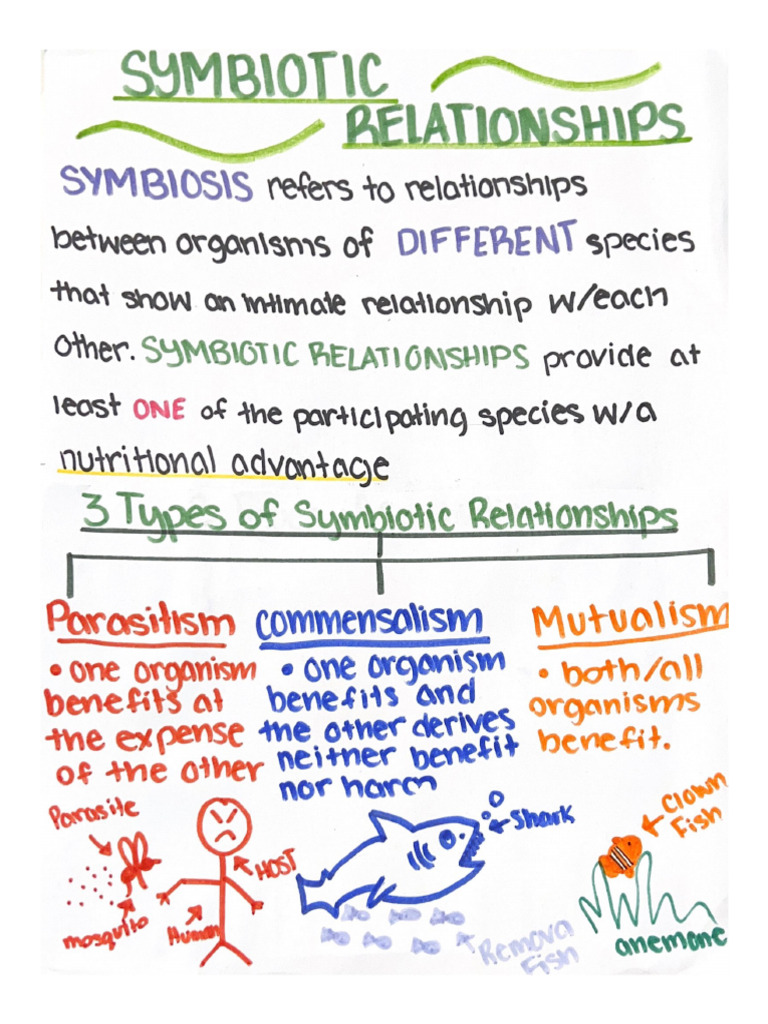 SYMBIOTIC
RELATIONSHIPS
SYMBIOSIS refers to relationships
between organisms of DIFFERENT species
that show an intimate relationship w/each
other. SYMBIOTIC RELATIONSHIPS provide at
least ONE of the participating species w/a
nutritional advantage
3 Types of Symbiotic Relationships
Parasitism
• one organism
benefits at
the expense
of the other
Parasite
mosquito
Human
HOST
commensalism
• one organism
benefits and
the other derives
neither benefit
nor harm
Shark
Remova
Fish
Mutualism
• both/all
organisms
benefit.
Clown
Fish
anemone